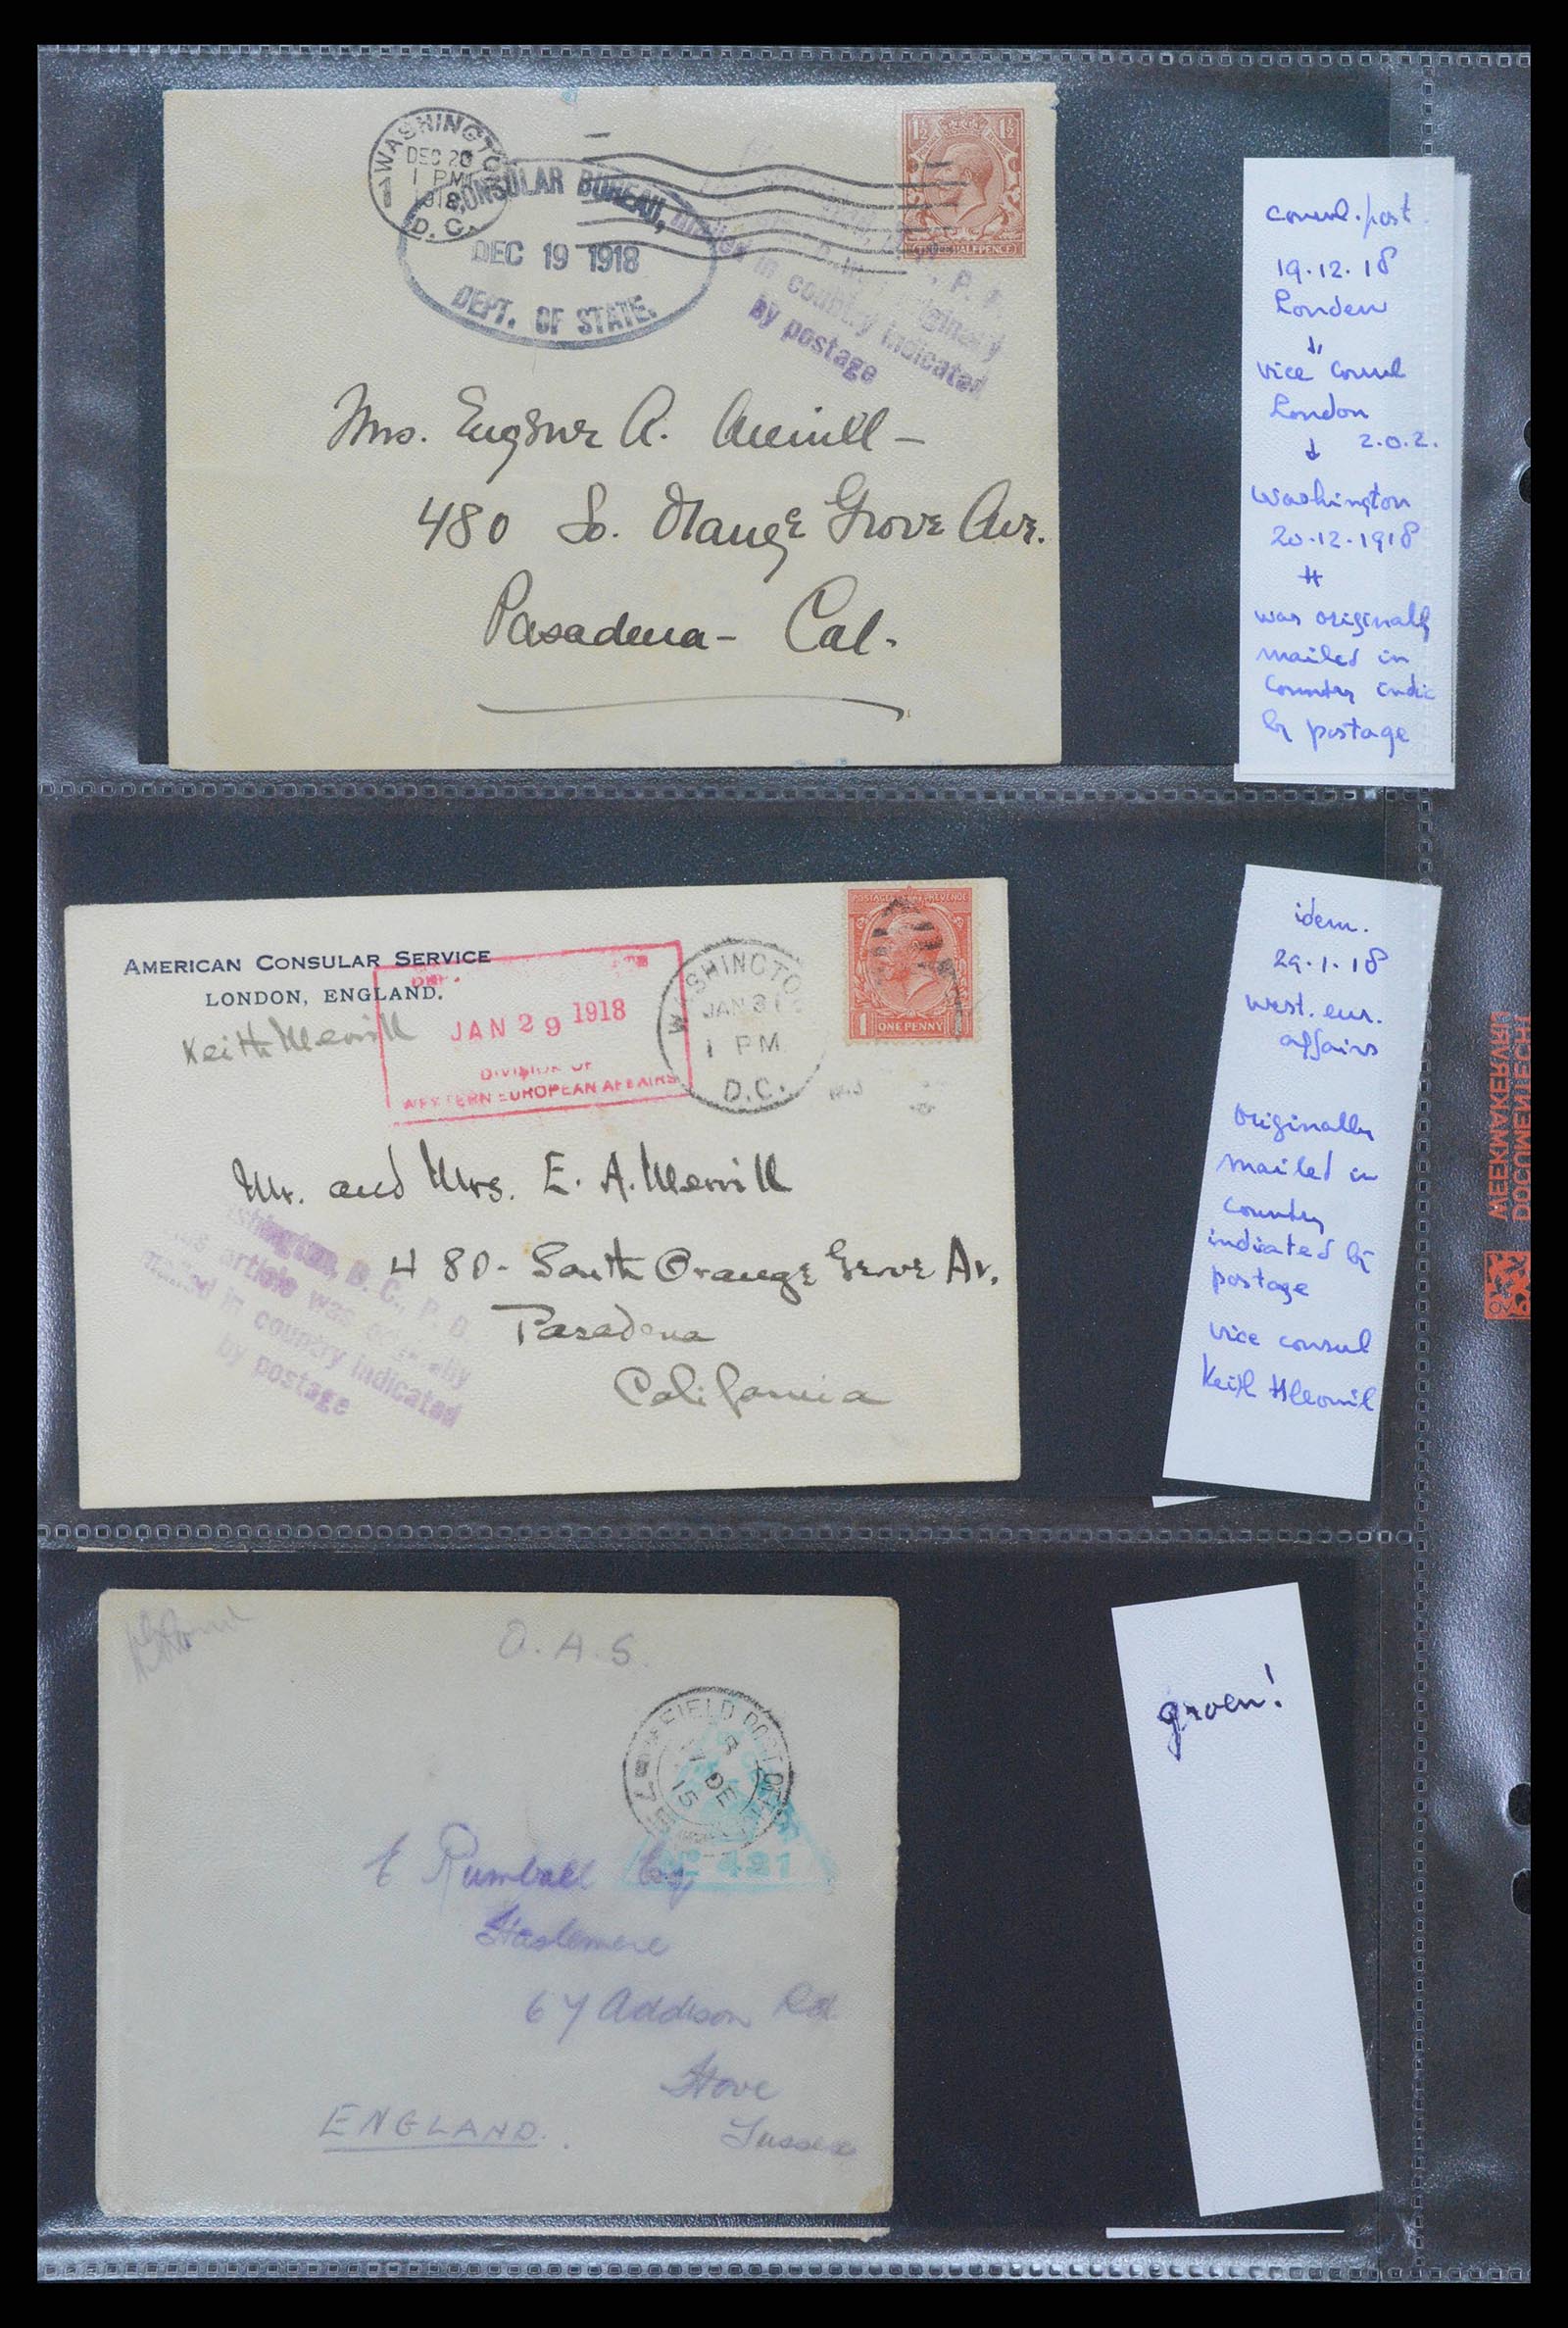 WASHINGTON
DEC 20
1 PM
1918
D.C.
CONSULAR BUREAU,
DEC 19 1918
DEPT. OF STATE.
mailed in country indicated
by postage
1½ 1½
THREE HALFPENCE
Mrs. Eugene A. Merrill –
480 So. Orange Grove Ave.
Pasadena – Cal.
consul. post
19.12.18
Londen
↓
vice consul
London
↓ 2.0.2.
Washington
20.12.1918
was originally
mailed in
country indic
by postage
AMERICAN CONSULAR SERVICE
LONDON, ENGLAND.
Keith Merrill
JAN 29 1918
DIVISION OF
WESTERN EUROPEAN AFFAIRS
WASHINGTON
JAN 31
1 PM
D.C.
POSTAGE REVENUE
1 ONE PENNY
Mr. and Mrs. E. A. Merrill
480 - South Orange Grove Av.
Pasadena
California
shington, D. C., P. O.
this article was originally
mailed in country indicated
by postage
idem.
29.1.18
west. eur.
affairs
originally
mailed in
country
indicated by
postage
vice consul
Keith
WEEKMAKERVAN
DOCUMENTECHT
O.A.S.
FIELD POST OFFICE
DE
15
421
E Rumball Esq
Haslemere
67 Addison Rd
Hove
Sussex
ENGLAND.
groen!